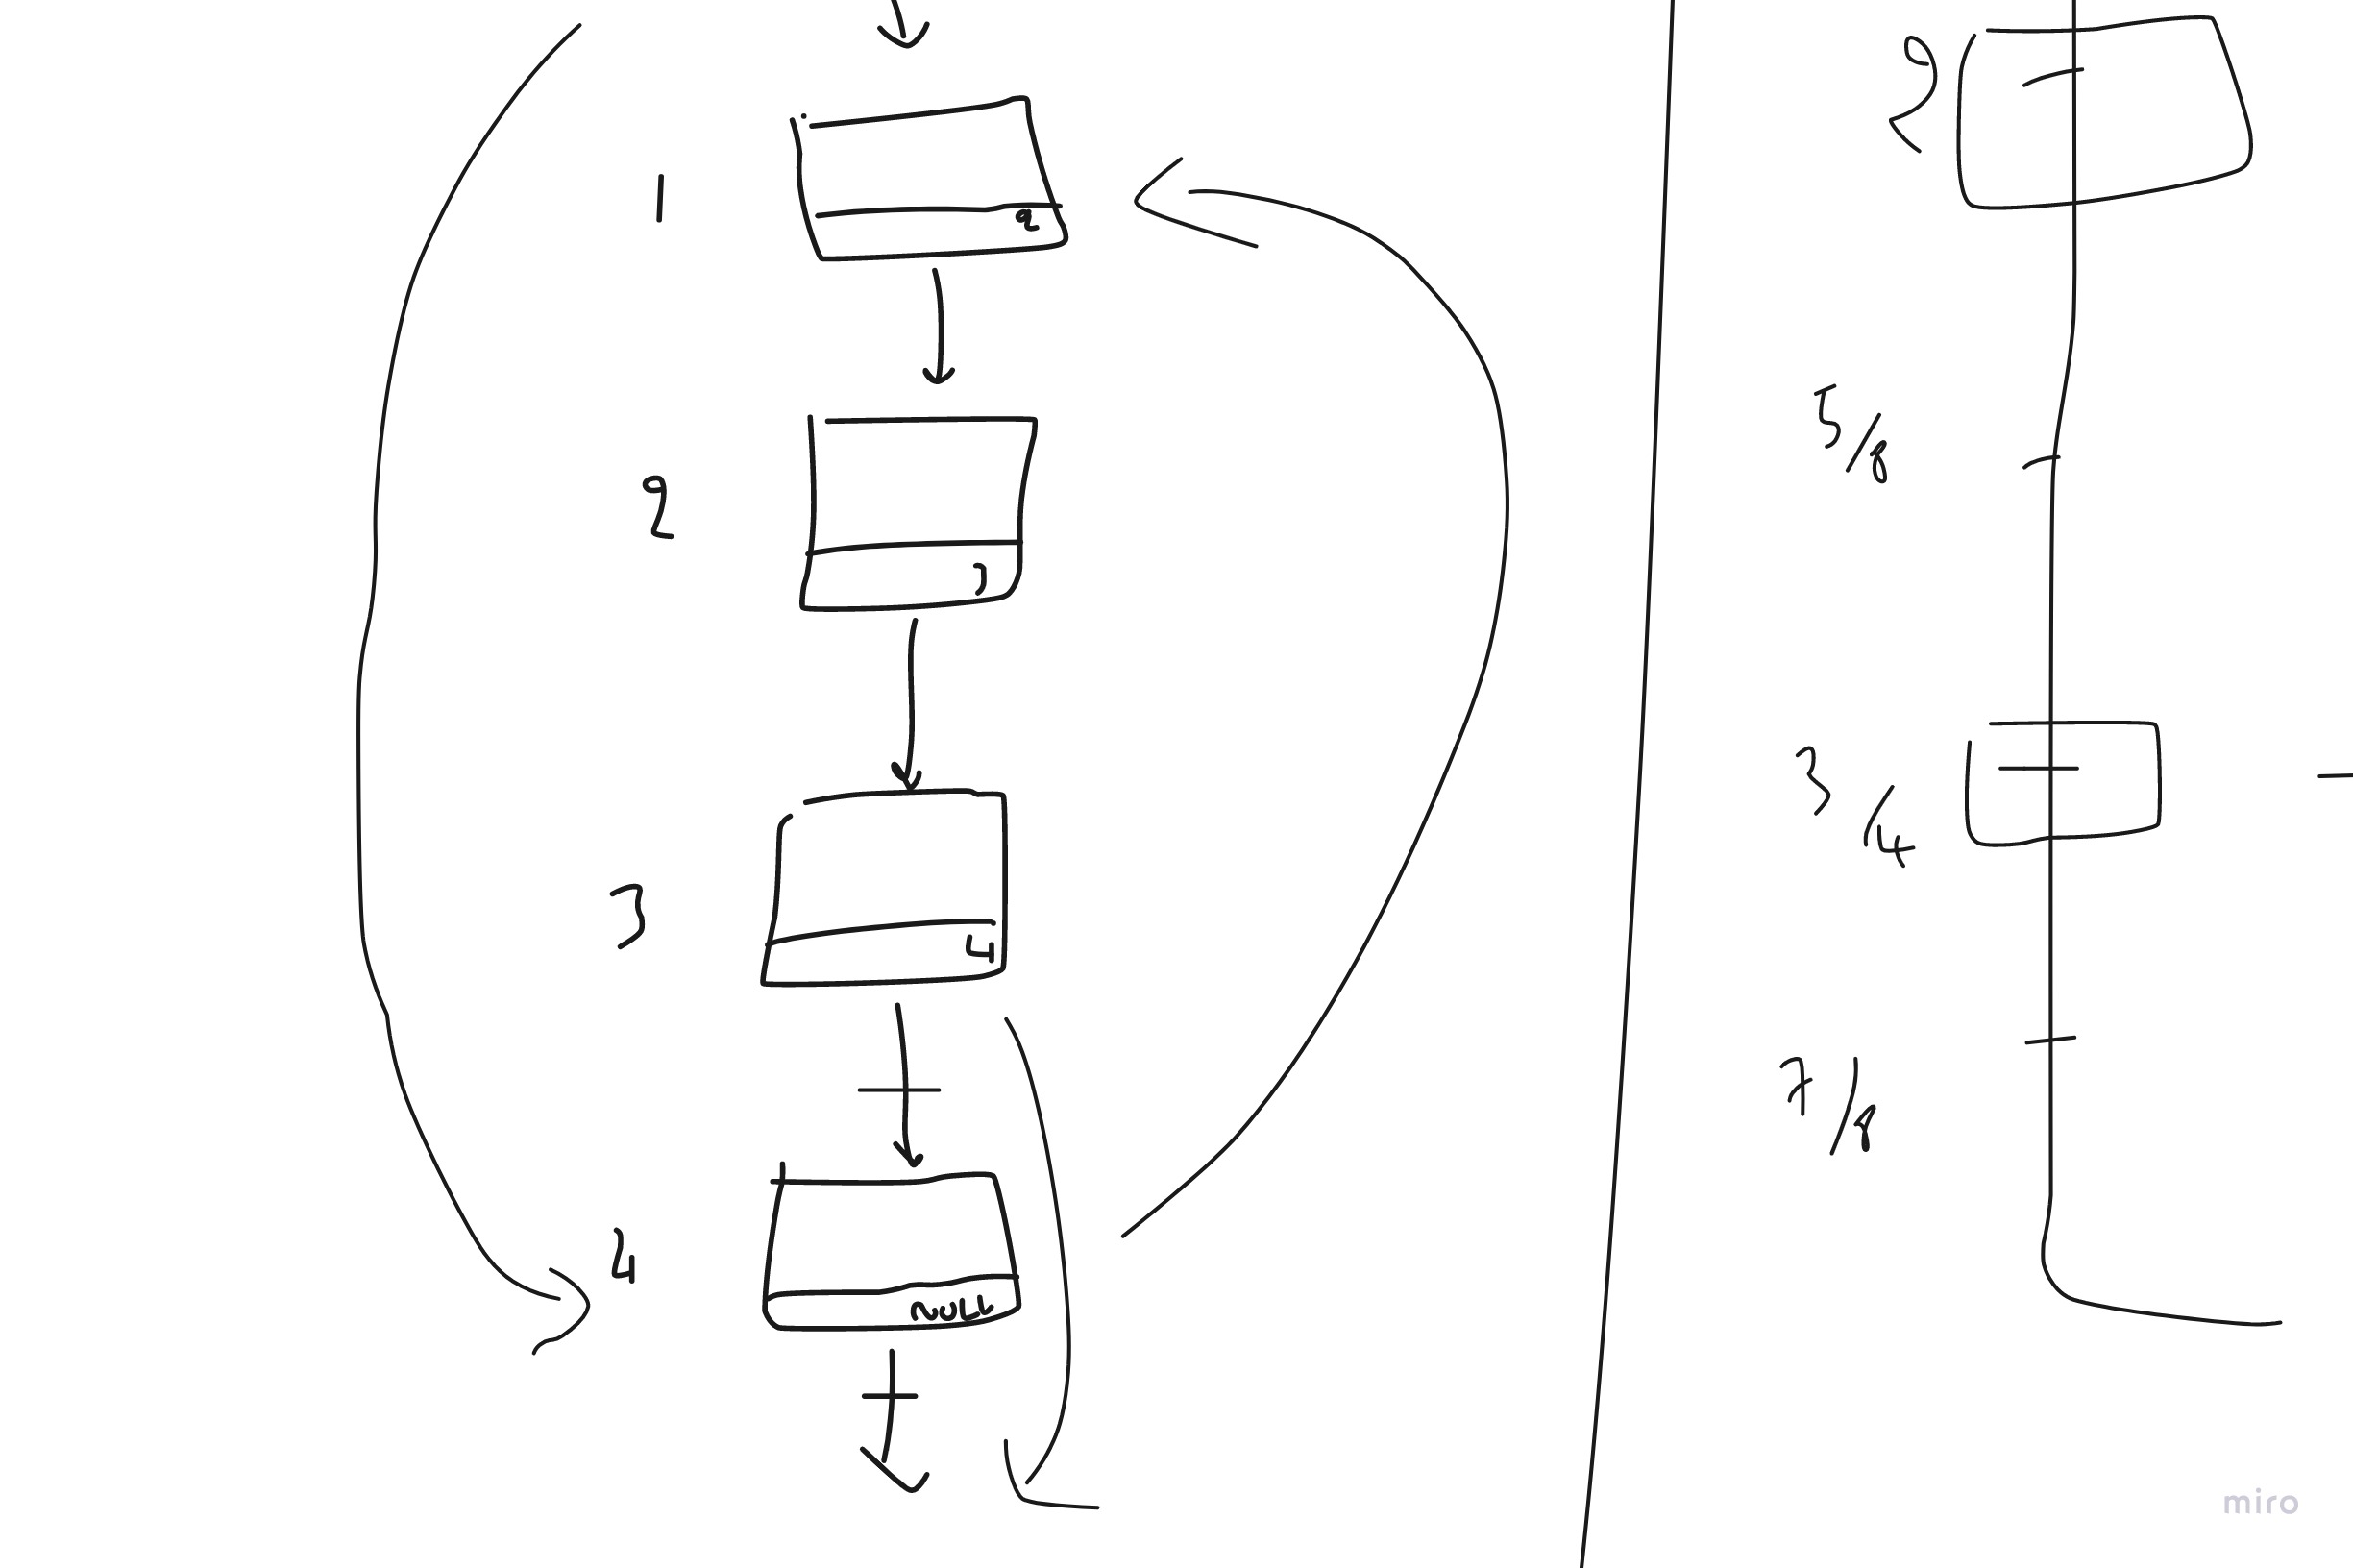 1
2
2
3
3
4
4
NULL
2
5/8
3/4
7/8
miro